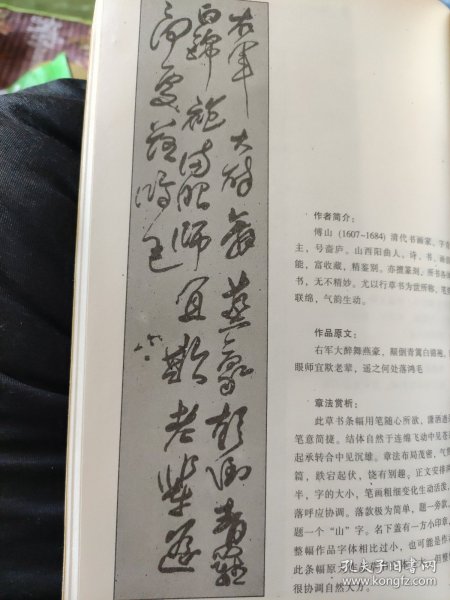 右軍大醉舞蒸豪顛倒青籬
白錦袍滿眼師宜欺老輩遥
處落鴻毛
山
作者简介：
傅山 (1607~1684) 清代书画家，字
主，号啬庐。山西阳曲人。诗、书、画
能，富收藏，精鉴别。亦擅篆刻，所书各
书，无不精妙。尤以行草书为世所称，笔
联绵，气韵生动。
作品原文：
右军大醉舞燕豪，颠倒青篱白锦袍，
眼师宜欺老辈，遥之何处落鸿毛
章法赏析：
此草书条幅用笔随心所欲，潇洒遒
笔意简捷。结体自然于连绵飞动中见苍
起承转合中见沉雄。章法布局茂密，气
篇，跌宕起伏，饶有别趣。正文安排两
半，字的大小，笔画粗细变化生动活泼，
落呼应协调。落款极为简单，题一旁款，
题一个“山”字。名下盖有一方小印章，
整幅作品字体相比过小，也可能是作
此条幅原 但整
很协调自然大方。
孔夫子旧书网
www.kongfz.com